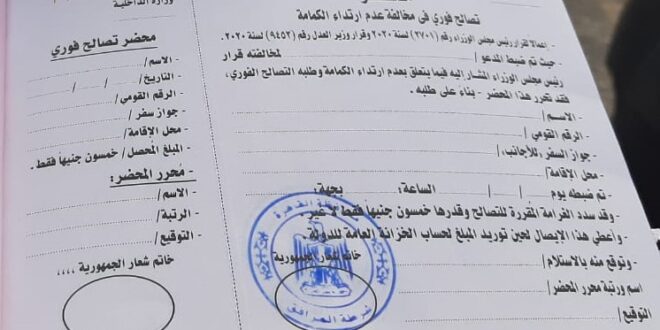 تصالح فورى فى مخالفة عدم ارتداء الكمامة
- إعمالاً لقرار رئيس مجلس الوزراء رقم (٢٧٠١) لسنة ٢٠٢٠ وقرار وزير العدل رقم (٩٤٥٢) لسنة ٢٠٢٠.
- حيث تم ضبط المدعو / لمخالفته قرار
رئيس مجلس الوزراء المشار إليه فيما يتعلق بعدم ارتداء الكمامة وطلبه التصالح الفوري،
فقد تحرر هذا المحضر - بناءً على طلبه.
- الاسم/
- الرقم القومي /
- جواز السفر للأجانب/
- محل الإقامة/
- تم ضبطه يوم / / الساعة، بجهة،
- وقد سدد الغرامة المقررة للتصالح وقدرها خمسون جنيهاً فقط لا غير.
- وأعطي هذا الإيصال لحين توريد المبلغ لحساب الخزانة العامة للدولة.
- وتوقع منه بالاستلام / خاتم شعار الجمهورية
اسم ورتبة محرر المحضر/
التوقيع /
وزارة الداخلية
محضر تصالح فوري
- الاسم/
- التاريخ/ / /
- الرقم القومي/
- جواز سفر/
- محل الإقامة/
- المبلغ المحصل/ خمسون جنيهاً فقط.
- محرر المحضر:
- الاسم/
- الرتبة/
- التوقيع/
خاتم شعار الجمهورية ....